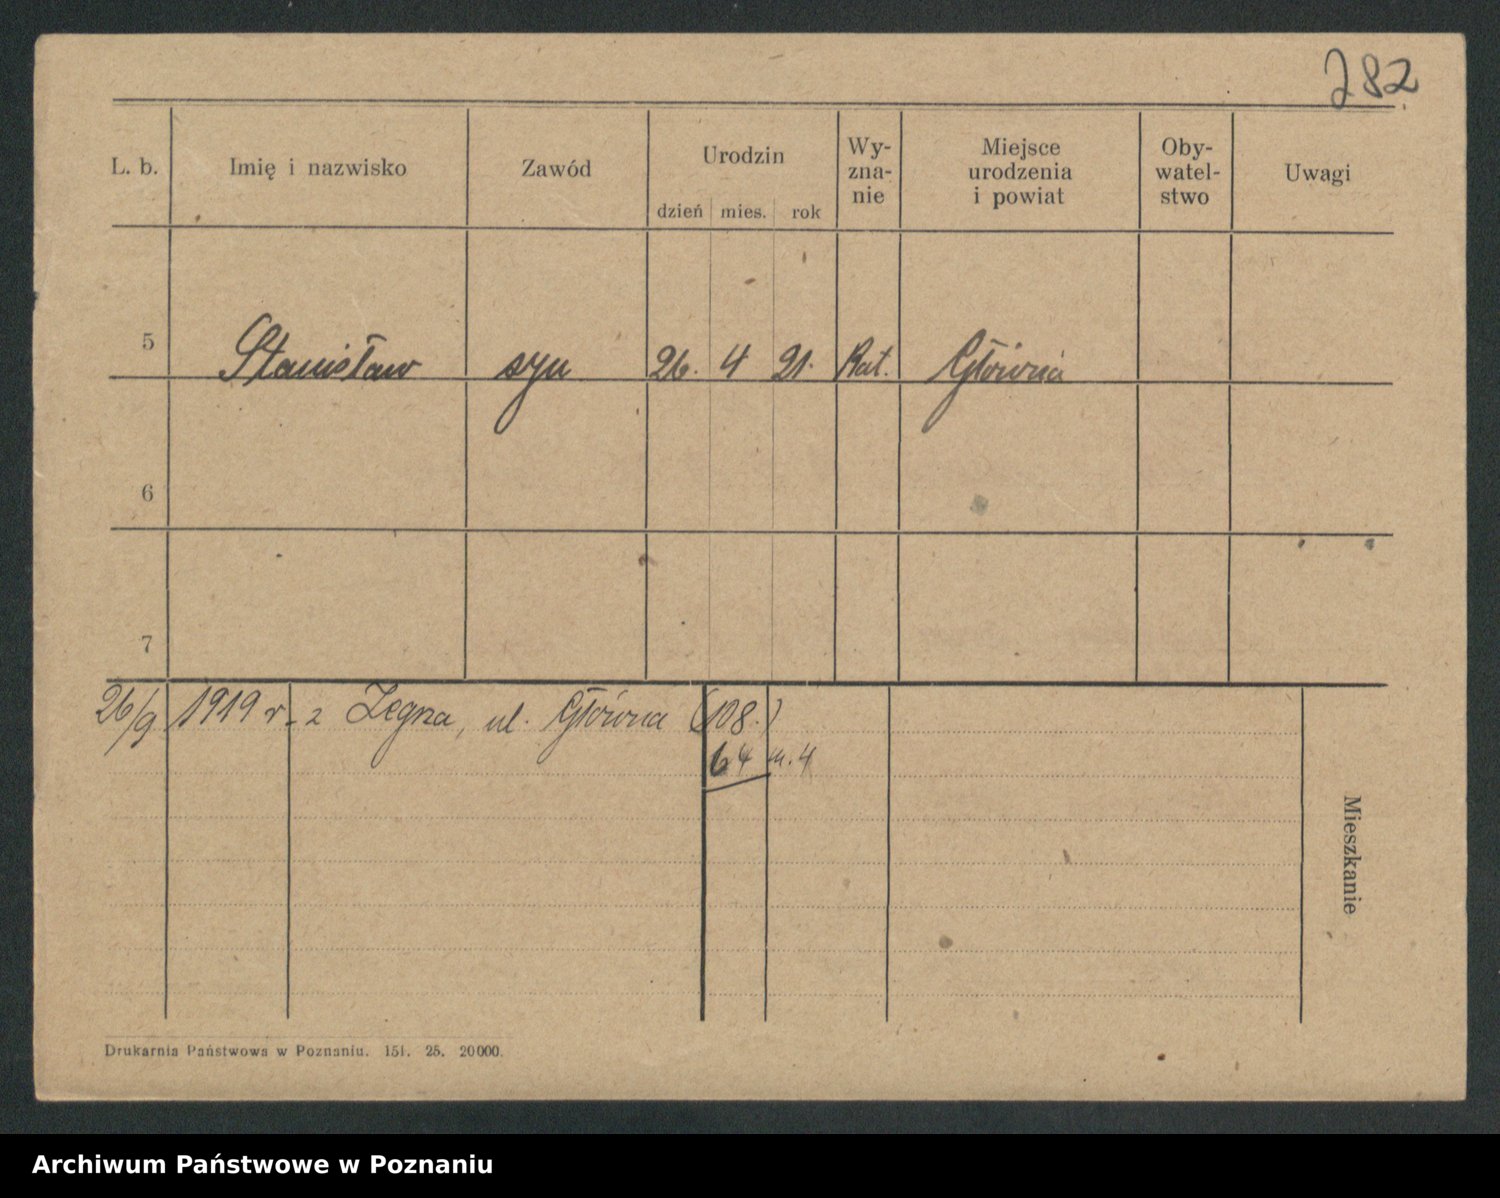 282
L. b. Imię i nazwisko Zawód Urodzin dzień mies. rok Wy-zna-nie Miejsce urodzenia i powiat Oby-watel-stwo Uwagi
5 Stanisław syn 26. 4 21. Kat. Główna
6
7
26/9 1919 r. z Zegrza, ul. Główna (108.)
64 m. 4
Mieszkanie
Drukarnia Państwowa w Poznaniu. 151. 25. 20000.
Archiwum Państwowe w Poznaniu